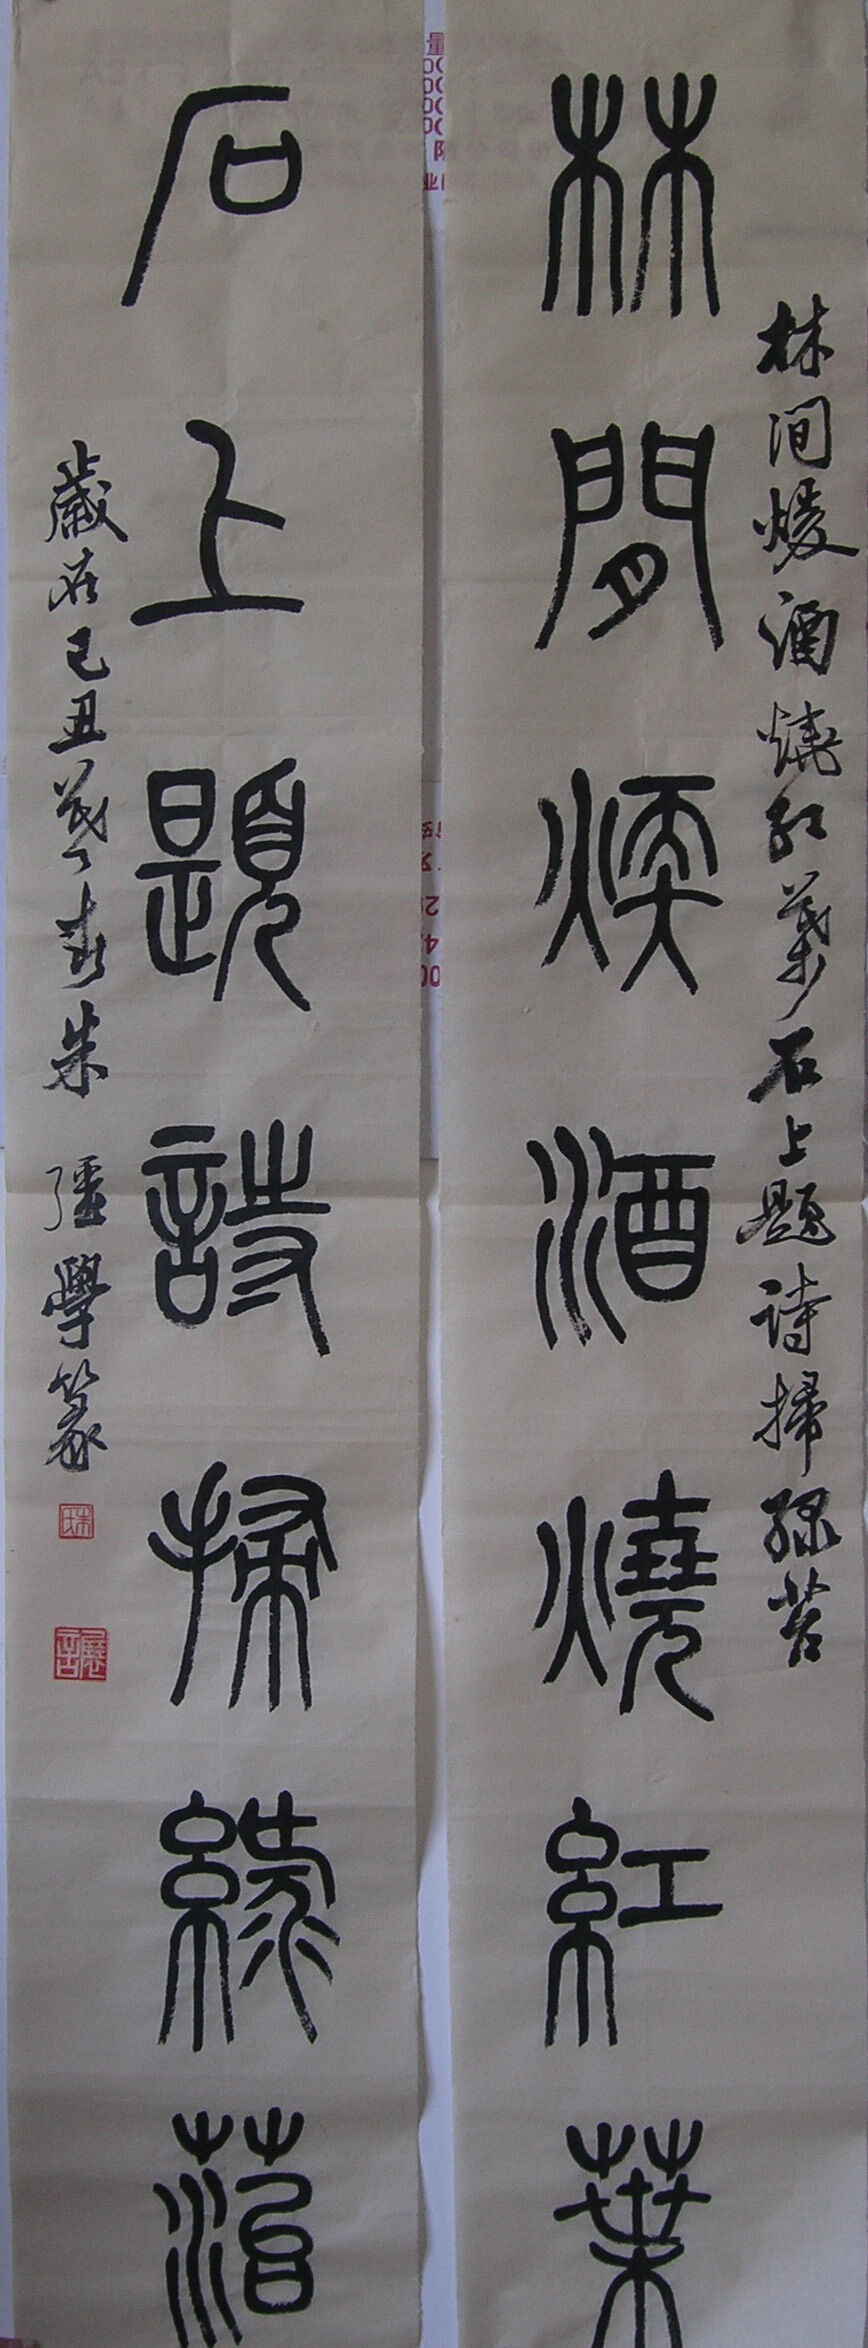 林间煖酒燒红葉石上题诗掃绿苔
林間煖酒燒紅葉
石上題詩掃綠菭
歲在己丑暮春朱彊學篆
朱氏